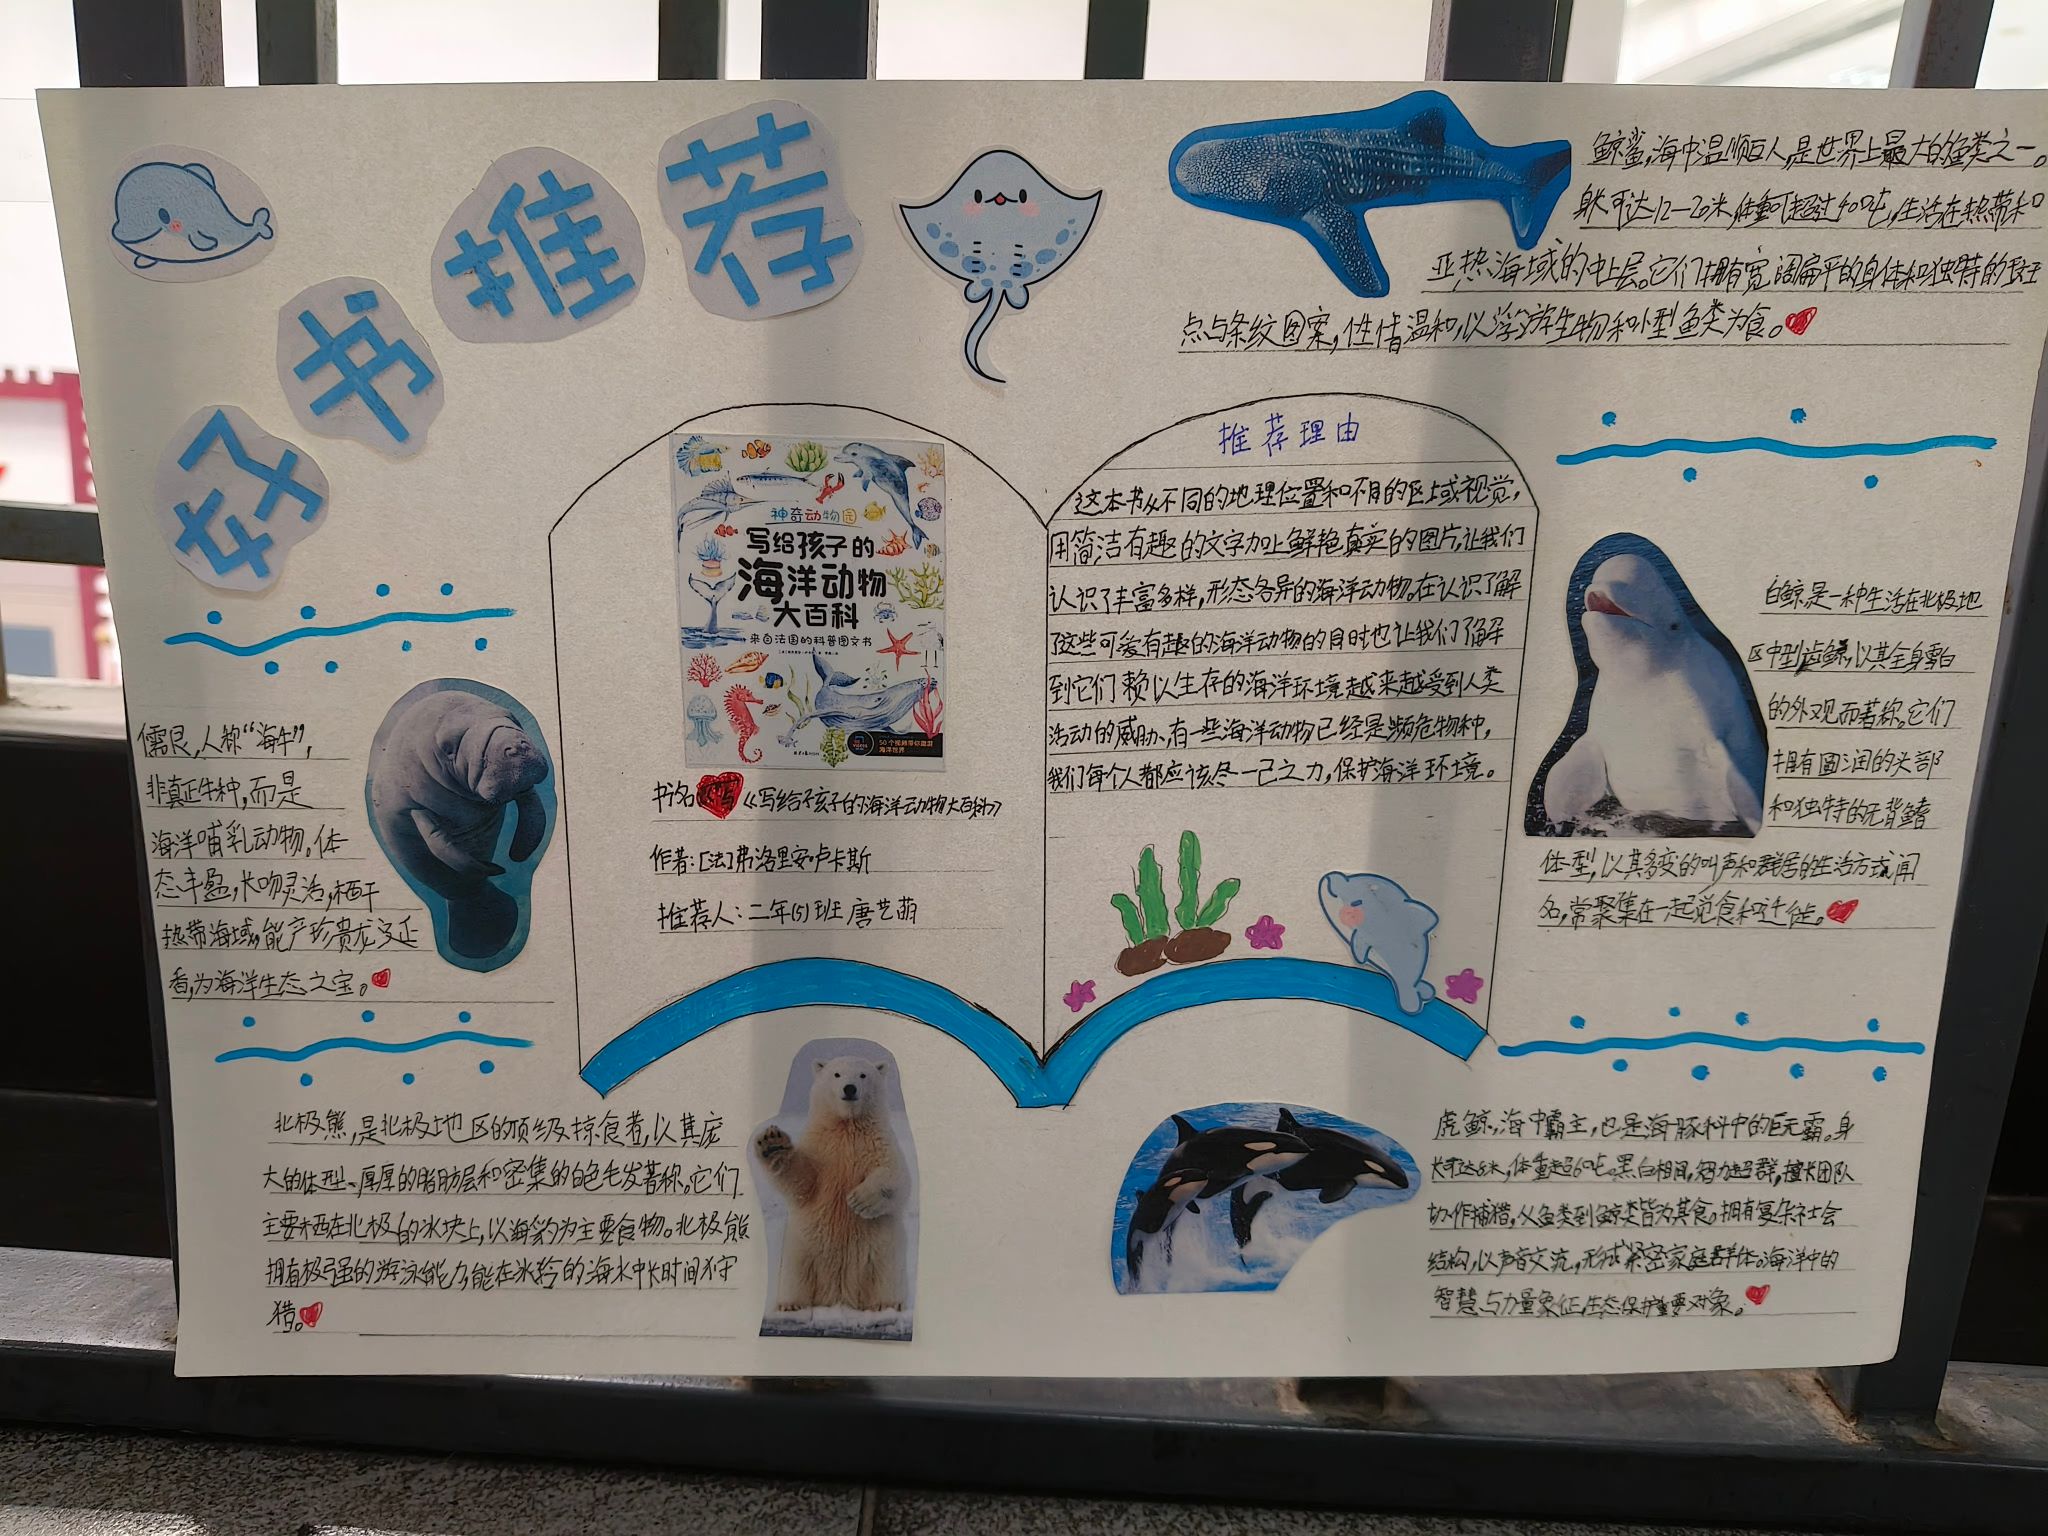 好书推荐
鲸鲨,海中温顺巨人,是世界上最大的鱼类之一。
身长可达12-20米,体重可超过40吨,生活在热带和
亚热海域的中上层。它们拥有宽阔扁平的身体和独特的斑
点与条纹图案,性情温和,以浮游生物和小型鱼类为食。
神奇动物园
写给孩子的
海洋动物
大百科
来自法国的科普图文书
50个视频带你遨游
海洋世界
书名 《写给孩子的海洋动物大百科》
作者:[法]弗洛里安·卢卡斯
推荐人:二年(5)班 唐艺萌
推荐理由
这本书从不同的地理位置和不同的区域视觉,
用简洁有趣的文字加上鲜艳真实的图片,让我们
认识了丰富多样,形态各异的海洋动物。在认识了解
了这些可爱有趣的海洋动物的同时也让我们了解
到它们赖以生存的海洋环境越来越受到人类
活动的威胁、有一些海洋动物已经是频危物种,
我们每个人都应该尽一己之力,保护海洋环境。
儒艮,人称“海牛”,
非真正牛种,而是
海洋哺乳动物。体
态丰盈,长吻灵活,栖于
热带海域,能产珍贵龙文正
香,为海洋生态之宝。
白鲸,是一种生活在北极地
区中型齿鲸,以其全身雪白
的外观而著称。它们
拥有圆润的头部
和独特的无背鳍
体型,以其多变的叫声和群居的生活方式闻
名,常聚集在一起觅食和迁徙。
北极熊,是北极地区的顶级掠食者,以其庞
大的体型、厚厚的脂肪层和密集的白色毛发著称。它们
主要栖在北极的冰块上,以海豹为主要食物。北极熊
拥有极强的游泳能力,能在冰冷的海水中长时间狩
猎。
虎鲸,海中霸主,也是海豚科中的巨无霸。身
长可达8米,体重超6吨。黑白相间,智力超群,擅长团队
协作捕猎,从鱼类到鲸类皆为其食。拥有复杂社会
结构,以声音交流,形成紧密家庭群体。海洋中的
智慧与力量象征,生态保护重要对象。